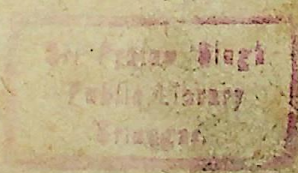 Sri Pratap Singh
Public Library
Srinagar.